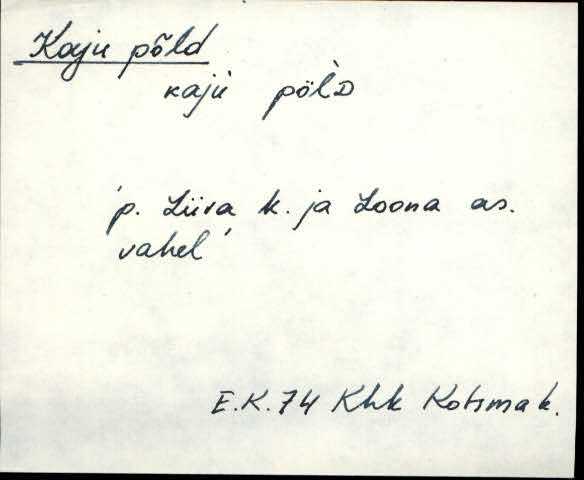 Kaju põld
kajù pöl̀D
'p. Liiva k. ja Loona as.
vahel'
E.K. 74 Khk Kotsma k.